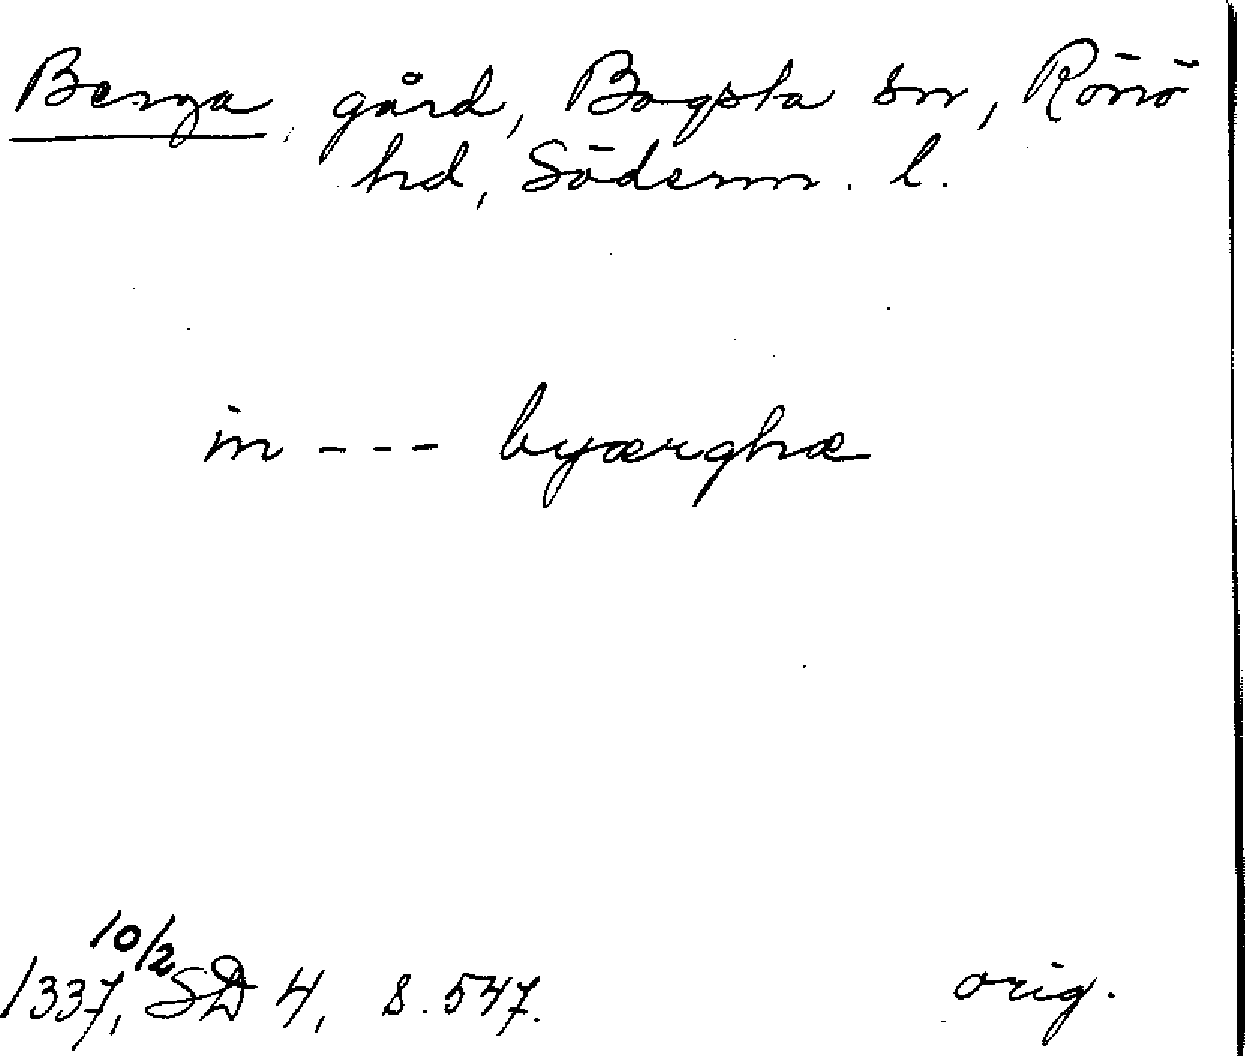 Berga, gård, Bogsta sn, Rönö
hd, Söderm. l.
in --- byærghæ
10/2
1337, SD 4, s. 547.
orig.